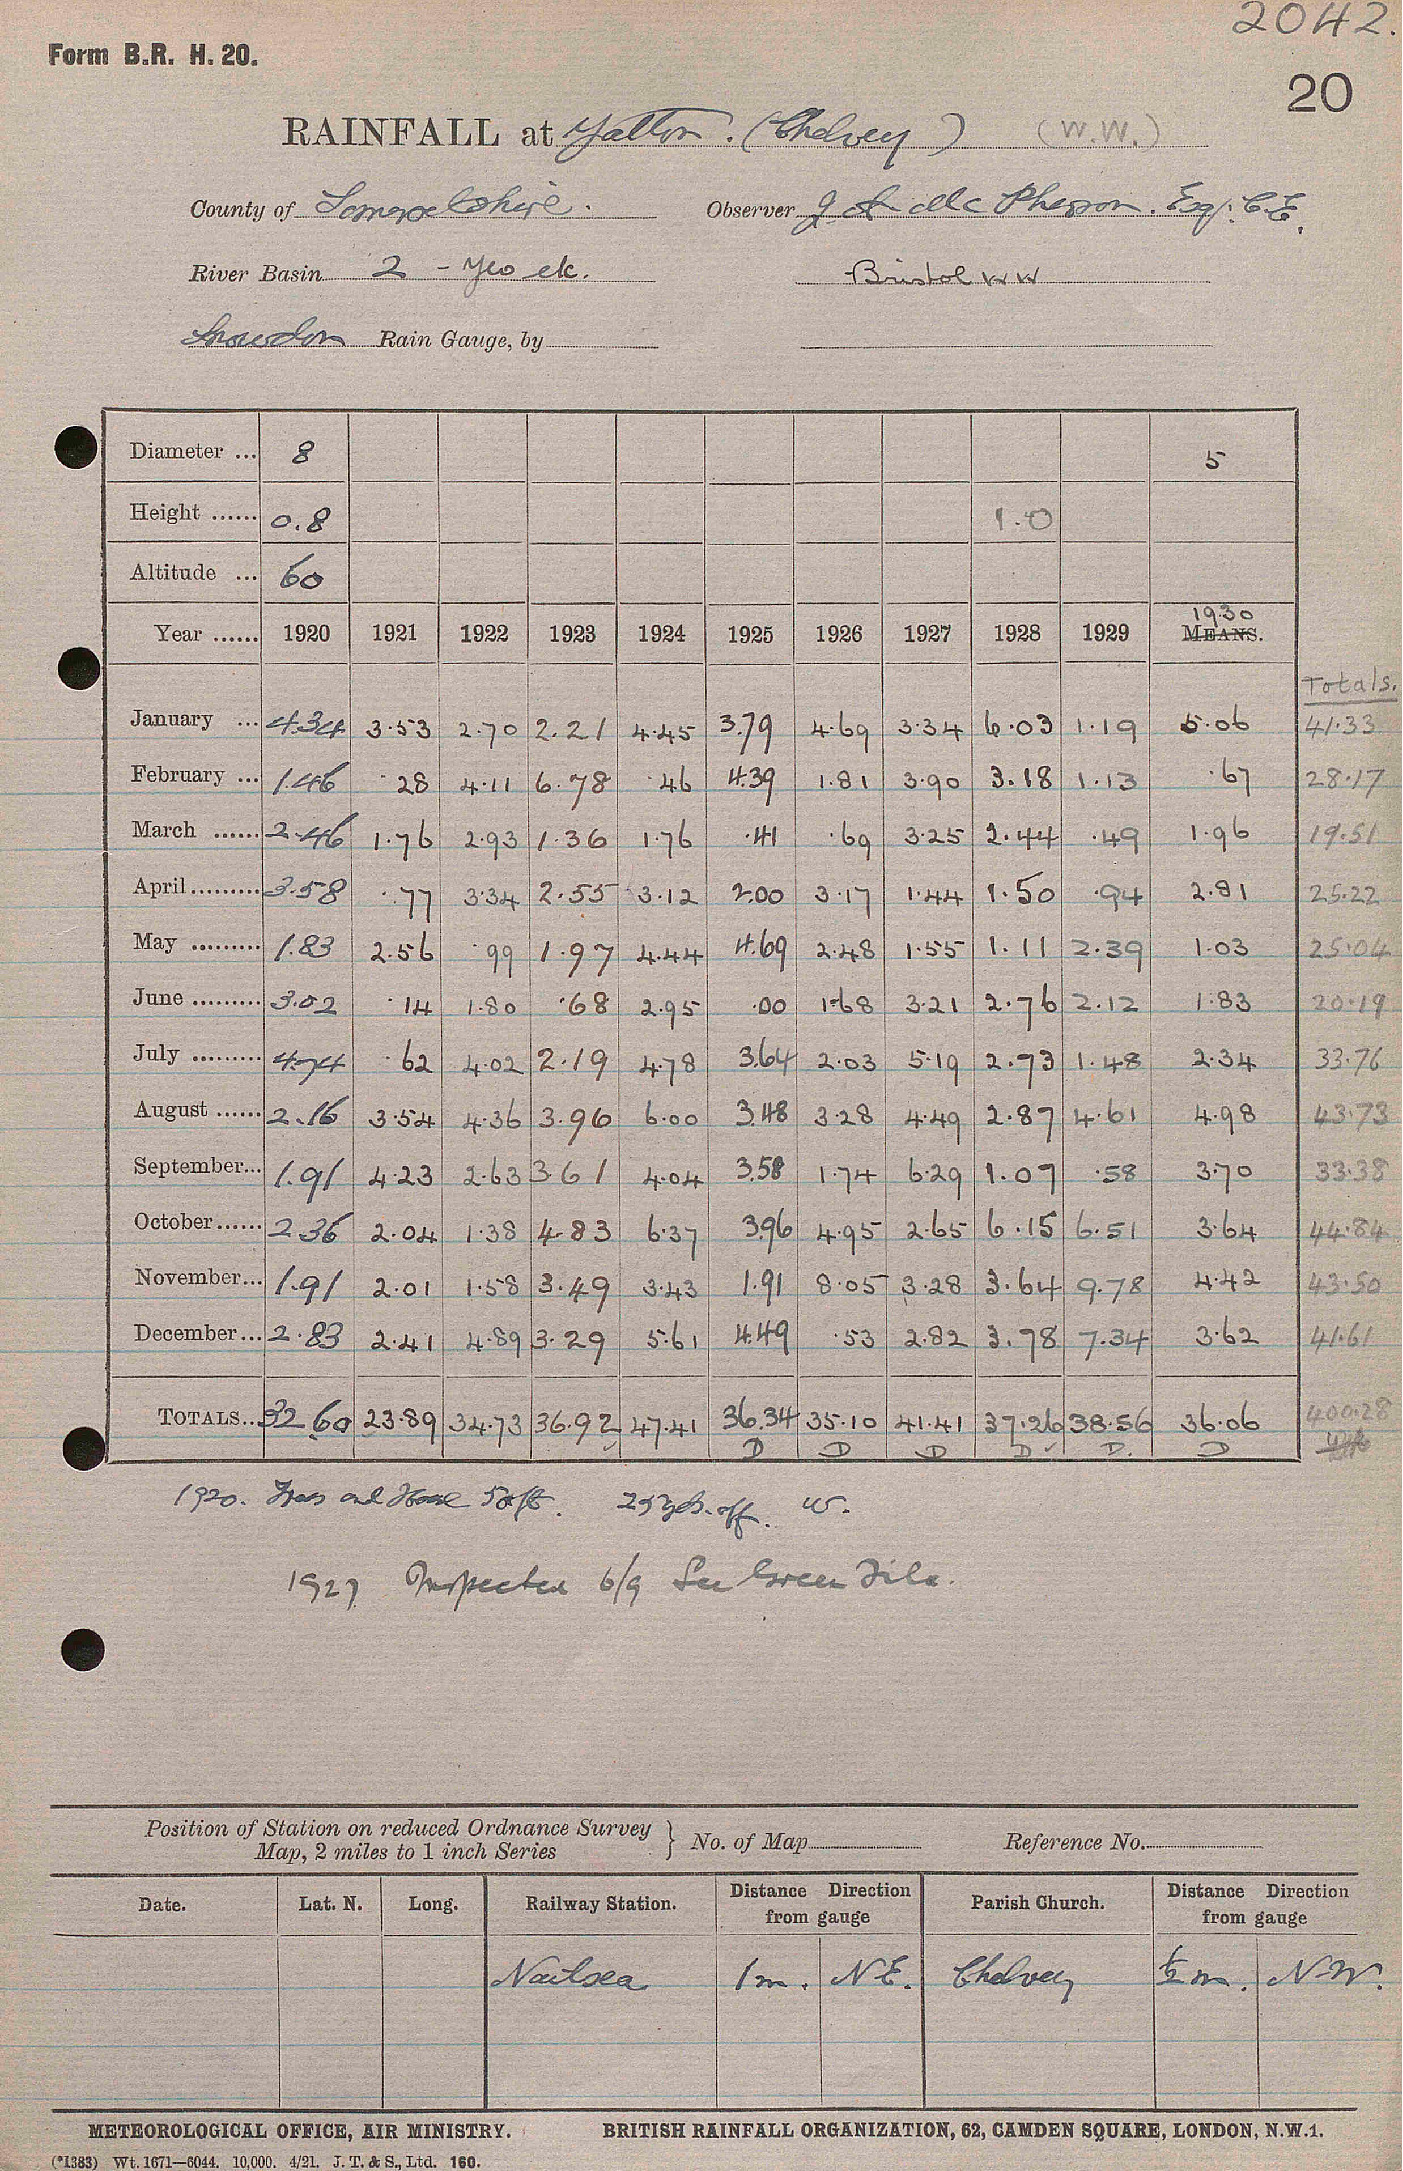 2042.
Form B.R. H. 20.
20
RAINFALL at Yatton. (Chelvey) (W.W.)
County of Somersetshire. Observer J. A. McPherson. Esq. C.E.
River Basin 2 - Yeo etc. Bristol WW
Snowdon Rain Gauge, by
Diameter ... 8 5
Height ...... 0.8 1.0
Altitude ... 60
1930
Year ...... 1920 1921 1922 1923 1924 1925 1926 1927 1928 1929 MEANS.
Totals.
January ... 4.34 3.53 2.70 2.21 4.45 3.79 4.69 3.34 6.03 1.19 5.06 41.33
February ... 1.46 .28 4.11 6.78 .46 4.39 1.81 3.90 3.18 1.13 .67 28.17
March ...... 2.46 1.76 2.93 1.36 1.76 .41 .69 3.25 2.44 .49 1.96 19.51
April ......... 3.58 .77 3.34 2.55 3.12 2.00 3.17 1.44 1.50 .94 2.81 25.22
May ......... 1.83 2.56 .99 1.97 4.44 4.69 2.48 1.55 1.11 2.39 1.03 25.04
June ......... 3.02 .14 1.80 .68 2.95 .00 1.68 3.21 2.76 2.12 1.83 20.19
July ......... 4.74 .62 4.02 2.19 4.78 3.64 2.03 5.19 2.73 1.48 2.34 33.76
August ...... 2.16 3.54 4.36 3.96 6.00 3.48 3.28 4.49 2.87 4.61 4.98 43.73
September... 1.91 4.23 2.63 3.61 4.04 3.58 1.74 6.29 1.07 .58 3.70 33.38
October ...... 2.36 2.04 1.38 4.83 6.37 3.96 4.95 2.65 6.15 6.51 3.64 44.84
November... 1.91 2.01 1.58 3.49 3.43 1.91 8.05 3.28 3.64 9.78 4.42 43.50
December... 2.83 2.41 4.89 3.29 5.61 4.49 .53 2.82 3.78 7.34 3.62 41.61
TOTALS.. 32.60 23.89 34.73 36.92 47.41 36.34 35.10 41.41 37.26 38.56 36.06 400.28
D D D D D. D
1920. Trees and House 50ft. 25yds. off. W.
1927 Inspected 6/9 See Green File.
Position of Station on reduced Ordnance Survey
Map, 2 miles to 1 inch Series } No. of Map Reference No.
Date. Lat. N. Long. Railway Station. Distance Direction from gauge Parish Church. Distance Direction from gauge
Nailsea 1 m. N.E. Chelvey ½ m. N.W.
METEOROLOGICAL OFFICE, AIR MINISTRY. BRITISH RAINFALL ORGANIZATION, 62, CAMDEN SQUARE, LONDON, N.W.1.
(*1383) Wt. 1671—6044. 10,000. 4/21. J. T. & S., Ltd. 160.